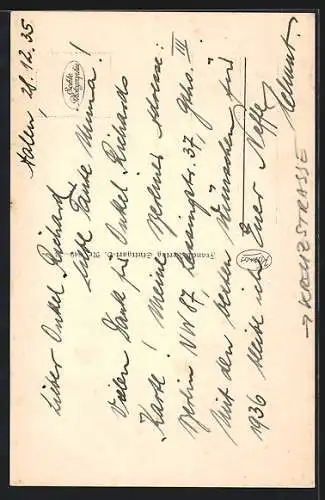 Aalen, 28.12.35
Lieber Onkel Richard
Liebe Tante Emma!
Vielen Dank für Onkel Richards
Karte! Meine Berliner Adresse:
Berlin NW 87, Lessingstr. 37, Ghs. III
Mit den besten Wünschen für
1936 bleibe ich Euer Neffe
Helmut.
→ KREUZSTRASSE
Echte Photographie